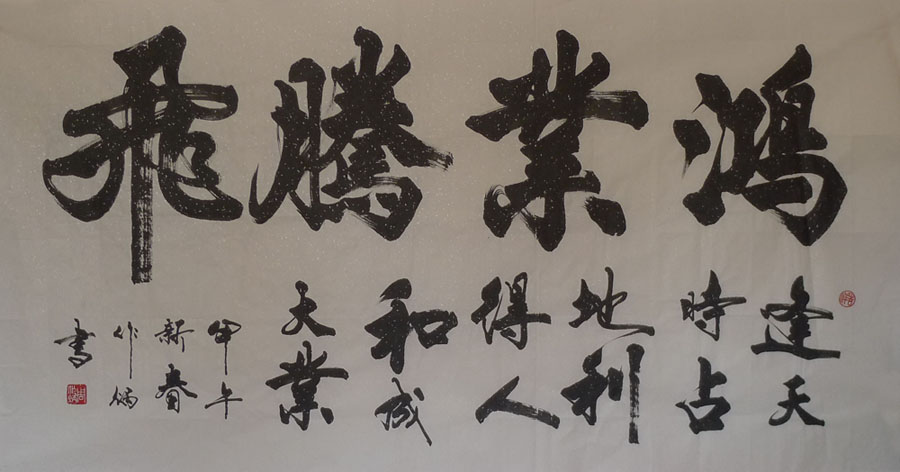 鴻業騰飛
逢天
時占
地利
得人
和成
大業
甲午
新春
作
書